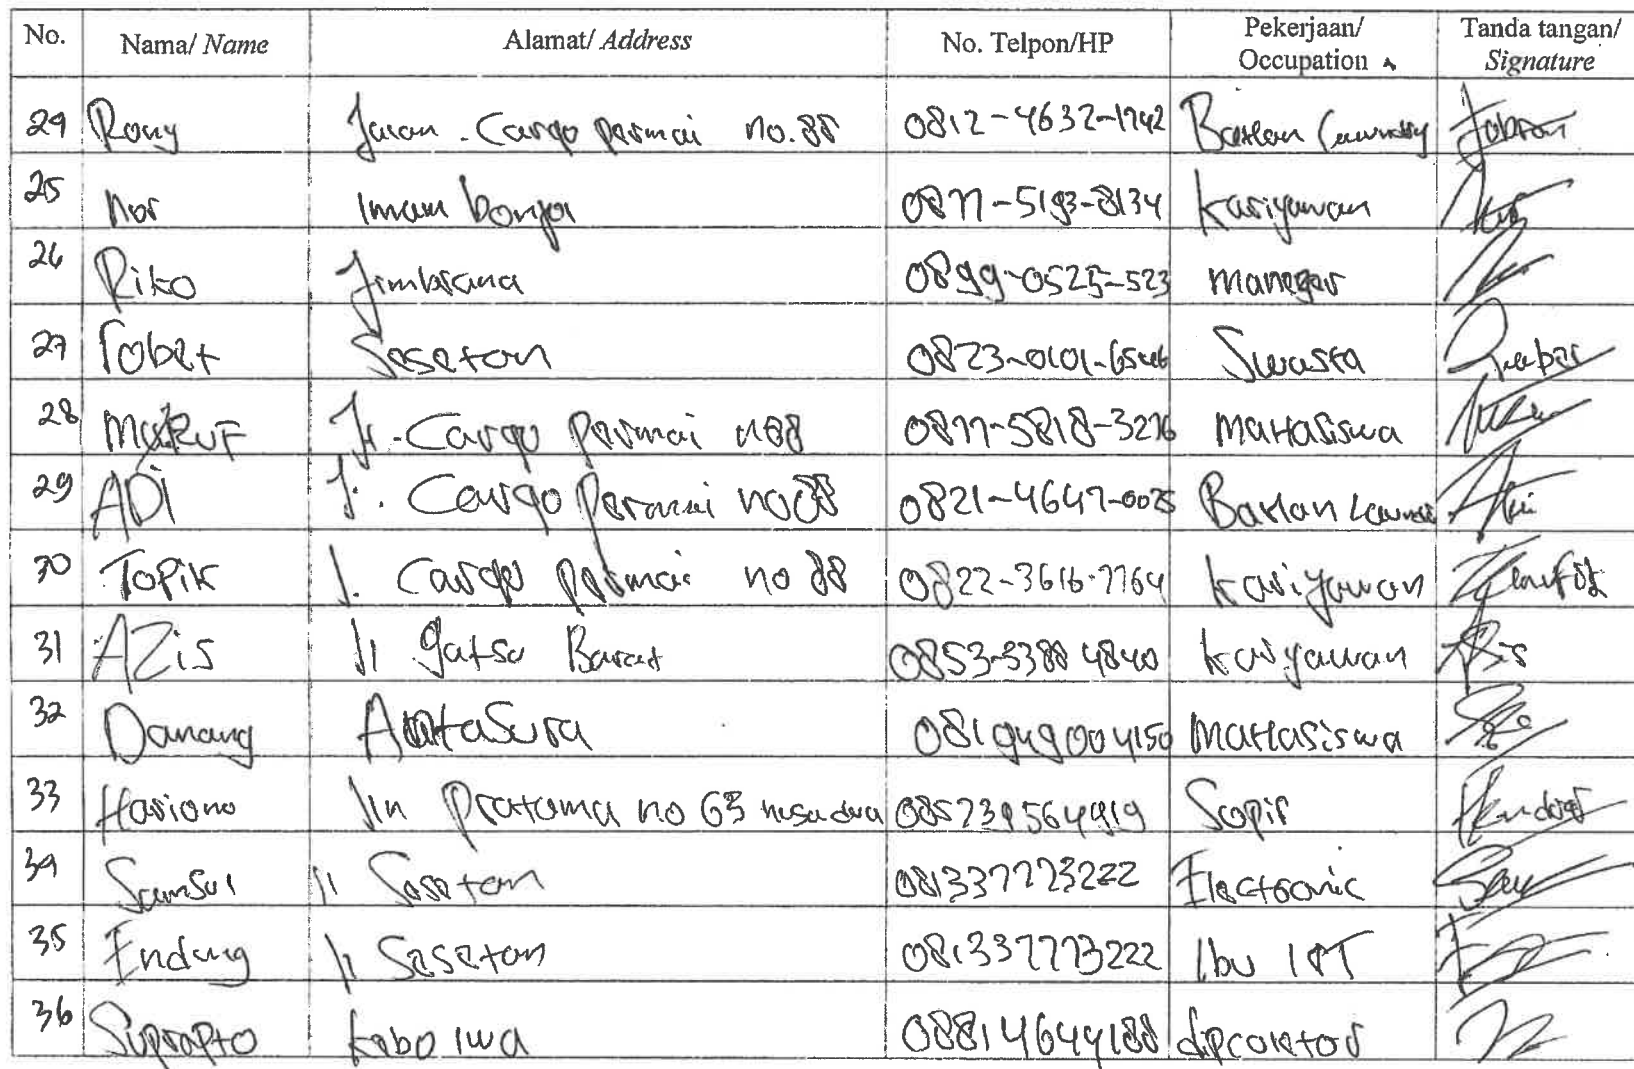 No. Nama/ Name Alamat/ Address No. Telpon/HP Pekerjaan/ Occupation Tanda tangan/ Signature
24 Rony Jalan. Cargo permai no. 88 0812-4632-1742 Bartan Laundry
25 Nor Imam bonjol 0877-5193-8134 kariyawan
26 Riko Jimbrana 0899-0525-523 maneger
27 robet Sesetan 0823-0101-6546 Swasta
28 MaRUF Jl. Cargo Permai no88 0877-5818-3276 maHasiswa
29 ADi Jl. Cargo Permai no88 0821-4647-0025 Bartan Laundri
30 TOPik Jl. Cargo permai no 88 0822-3616-7764 kariyawan Taufik
31 AZis Jl gatsu Barat 0853-3388 4840 karyawan Azis
32 Danang AntaSura 081949004150 maHasiswa
33 Hariono Jln Pratama no 63 nusa dua 085739564919 Sopir
34 Samsul Jl Sesetan 081337773222 Electronic
35 Endang Jl Sesetan 081337773222 Ibu IRT
36 Suprapto kebo iwa 08814644188 dipcoletor